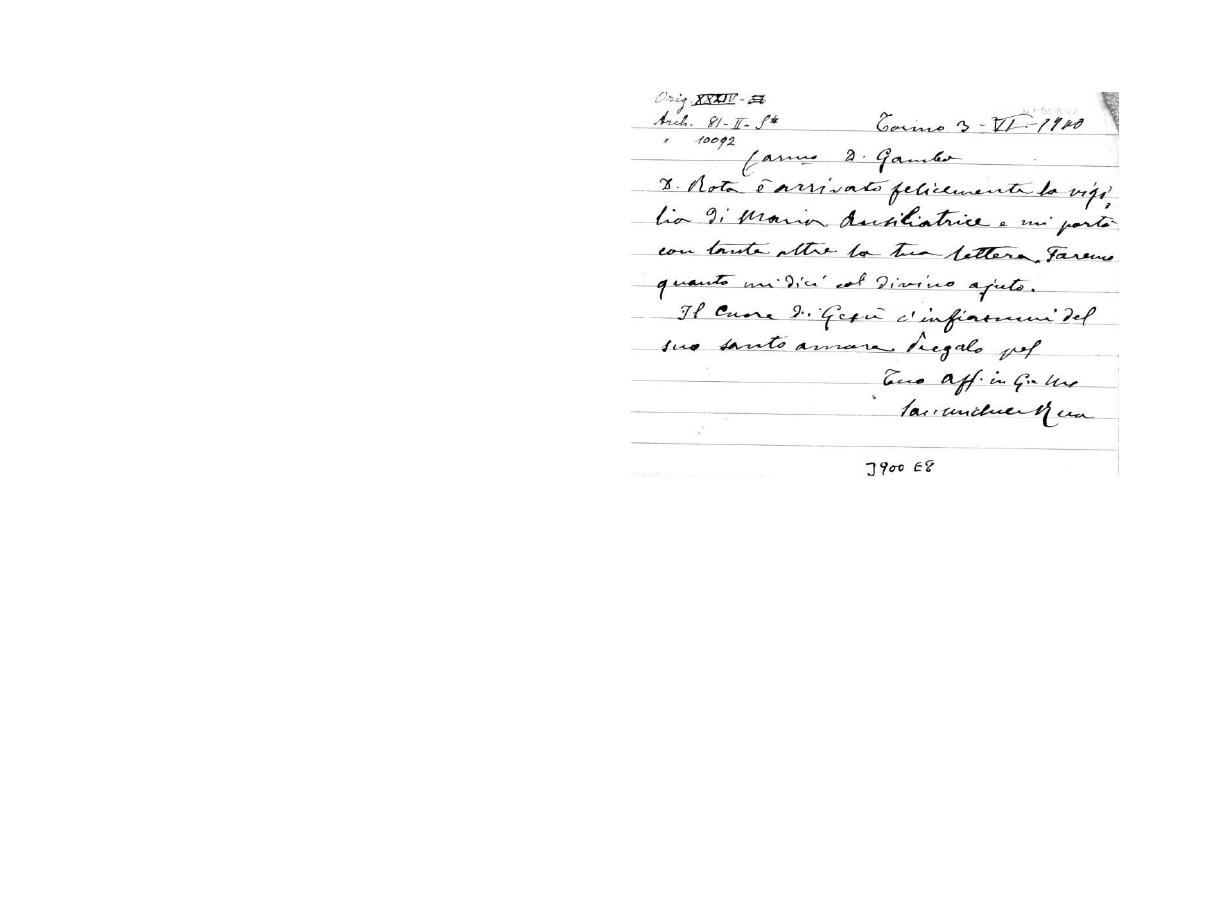 Orig. XXXIV -
Arch. 81-II-S*
" 10092
Torino 3-VI-1900
Carmo D. Gamba
D. Rota è arrivato felicemente la vigi,
lia di Maria Ausiliatrice e mi portò
con tante altre la tua lettera. Faremo
quanto mi dici col divino ajuto.
Il Cuore di Gesù c'infiammi del
suo santo amore. Pregalo pel
Tuo Aff. in G. e M.
Sac. Michele Rua
J900 E8